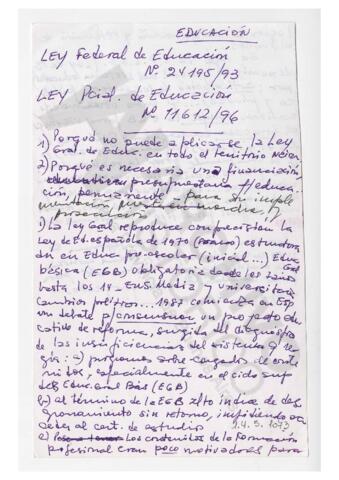 EDUCACIÓN
LEY Federal de Educación
Nº. 24195/93
LEY Pcial. de Educación
Nº. 11612/96
1) Porqué no puede aplicarse la Ley
Gral. de Educ. en todo el territorio
2) Porqué es necesaria una financiación
presupuestaria educa-
ción, permanente para su imple
mentación
prosecución
1) La Ley Gral reproduce con precisión la
Ley de Ed. española de 1970 (Franco) estructura
da en Educ. preescolar (inicial...) Educ Gral
básica (EGB) obligatoria desde los
hasta los 14 - Ens. Media y universitaria
Cambios políticos... 1987 comienza en Esp
un debate p/consensuar un proyecto edu
cativo de reforma, surgida del diagnóstico
de las insuficiencias del sistema q' re
gía: a) programas sobrecargados de conte
nidos, especialmente en el ciclo sup
de Educ. Gral Bás (EGB)
b) al término de la EGB alto índice de des
granamiento sin retorno, impidiendo ac
ceder al cert. de estudio
2.4.5.1073
c) Los contenidos de la Formación
profesional eran poco motivadores para